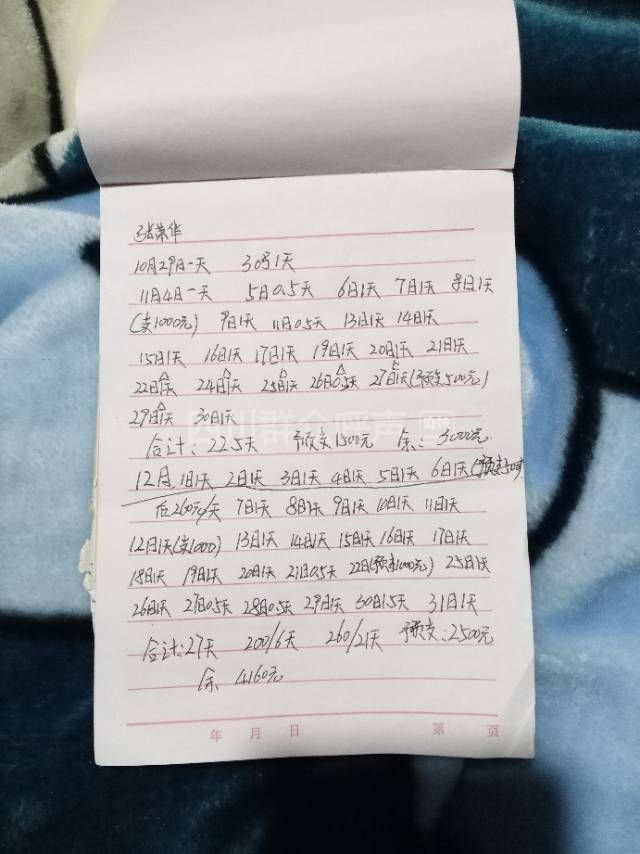 张荣华
10月29日一天 30号1天
11月4日一天 5日0.5天 6日1天 7日1天 8日1天
(支1000元) 9日1天 11日0.5天 13日1天 14日1天
15日1天 16日1天 17日1天 19日1天 20日1天 21日1天
22日1天 24日1天 25日1天 26日0.5天 27日1天(预支500元)
29日1天 30日1天
合计:22.5天 预支1500元 余:3000元
12月 1日1天 2日1天 3日1天 4日1天 5日1天 6日1天(预支500
后260元/天 7日1天 8日1天 9日1天 10日1天 11日1天
12日1天(支1000) 13日1天 14日1天 15日1天 16日1天 17日1天
18日1天 19日1天 20日1天 21日0.5天 22日(预支1000元) 25日1天
26日1天 27日0.5天 28日0.5天 29日1天 30日1.5天 31日1天
合计:27天 200/6天 260/21天 预支:2500元
余 4160元
年 月 日 第 页
四川群众呼声